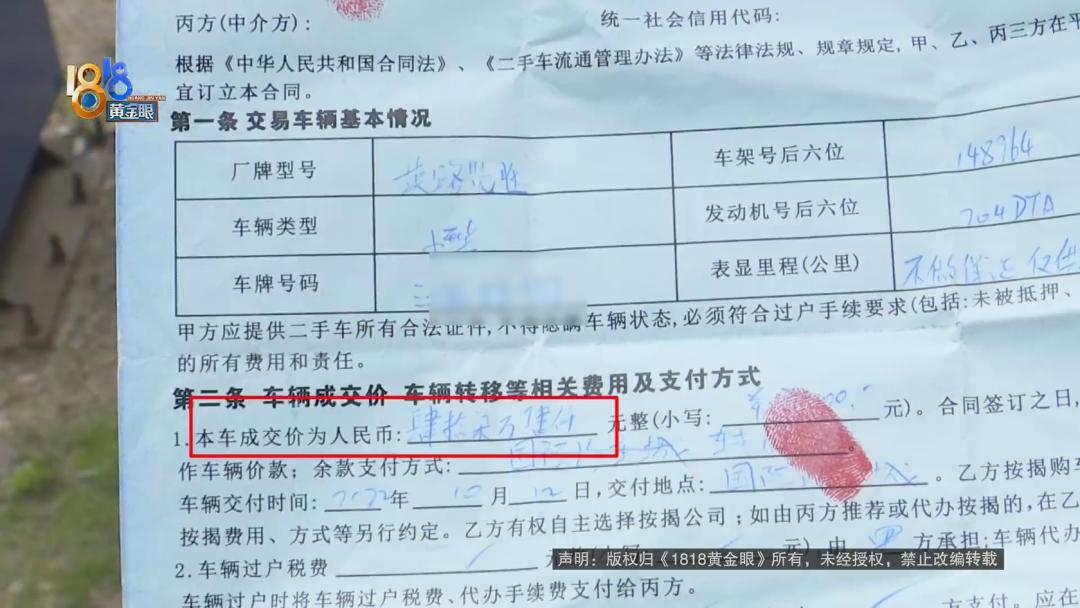 丙方(中介方): 统一社会信用代码:
根据《中华人民共和国合同法》、《二手车流通管理办法》等法律法规、规章规定,甲、乙、丙三方在平
宜订立本合同。
1818
黄金眼
第一条 交易车辆基本情况
厂牌型号 车架号后六位 148764
车辆类型 小型 发动机号后六位 204DTA
车牌号码 表显里程(公里) 不做保证
甲方应提供二手车所有合法证件,不得隐瞒车辆状态,必须符合过户手续要求(包括:未被抵押、
的所有费用和责任。
第二条 车辆成交价 车辆转移等相关费用及支付方式
1.本车成交价为人民币: 肆拾 万 元整(小写: 元)。合同签订之日,
作车辆价款; 余款支付方式: 国际 城
车辆交付时间: 2022年10月12日,交付地点: 国际 城。乙方按揭购
按揭费用、方式等另行约定。乙方有权自主选择按揭公司;如由丙方推荐或代办按揭的,在乙
2.车辆过户税费 元 由 方承担;车辆代办
声明:版权归《1818黄金眼》所有,未经授权,禁止改编转载
车辆过户时将车辆过户税费、代办手续费支付给丙方。
方支付。应在